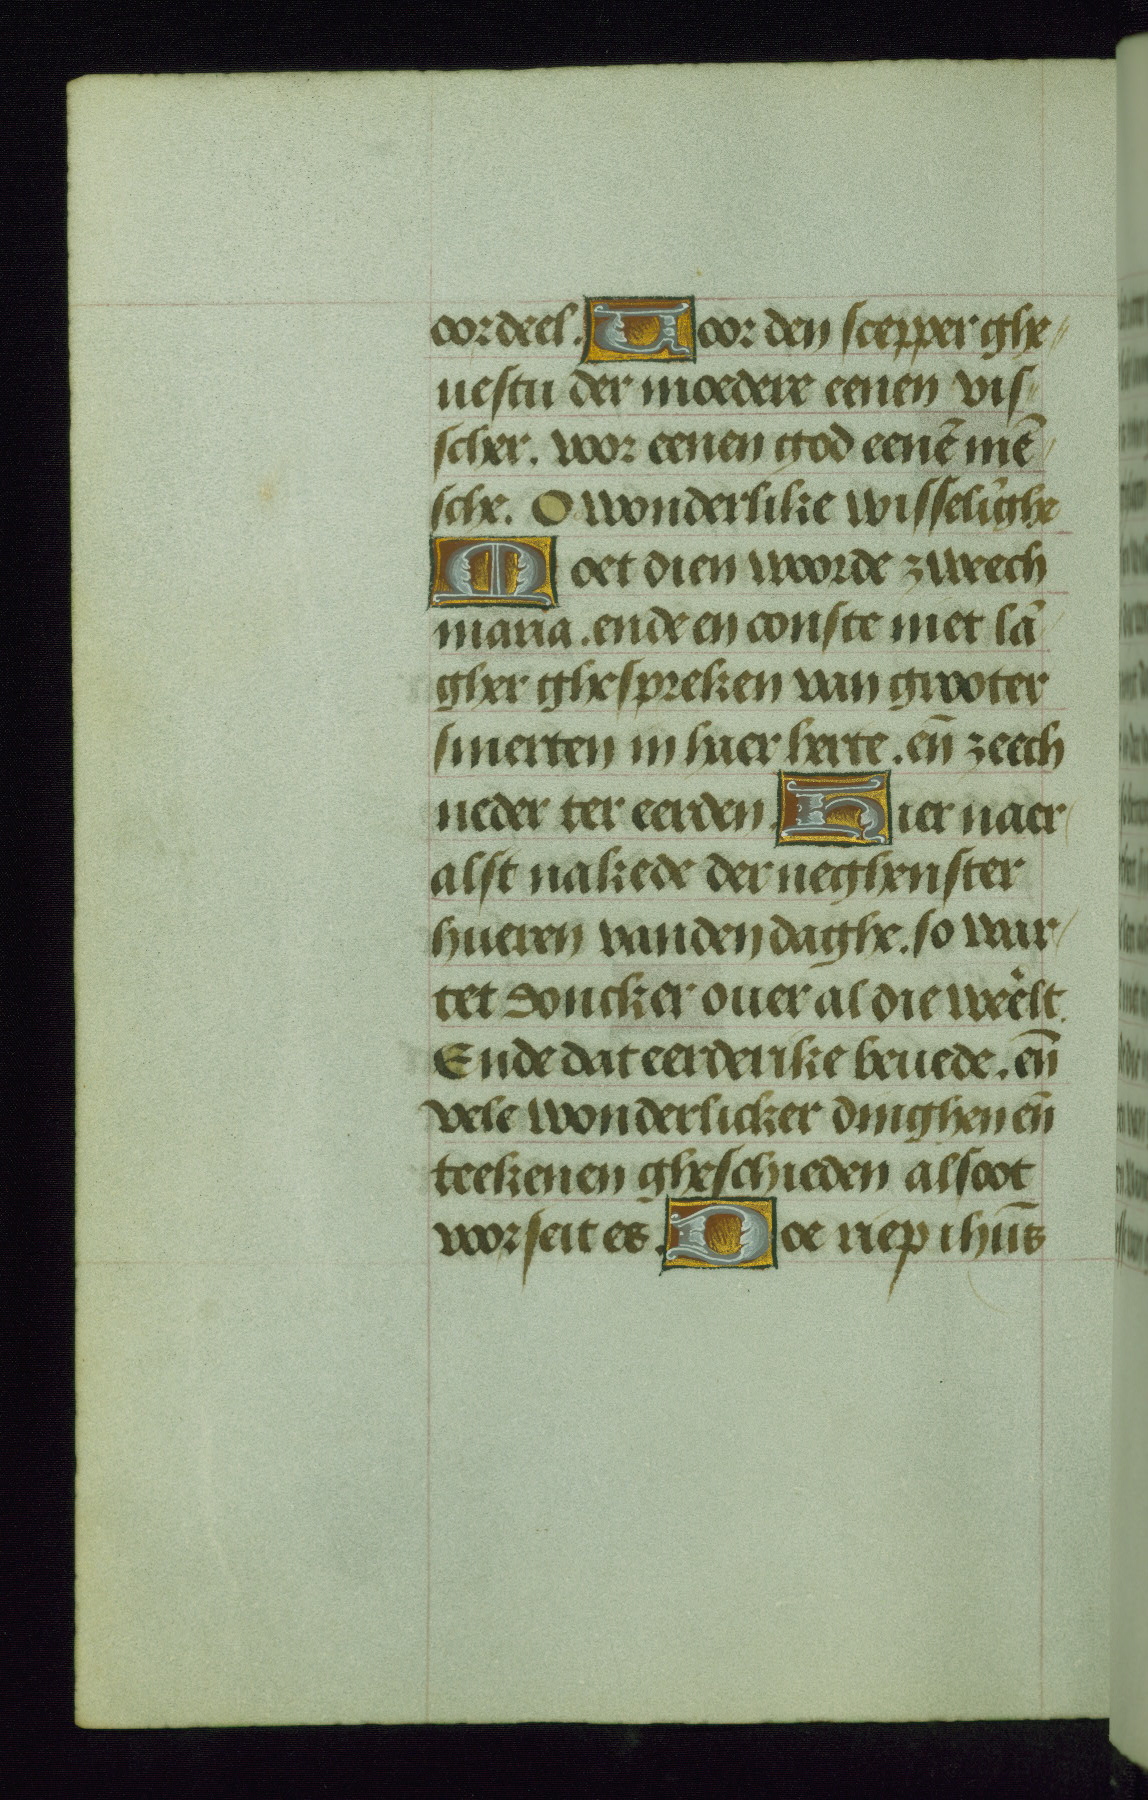 oordeel. Voor den scepper ghe-
uestu der moedere eenen vis-
scher. voor eenen god eenē mē-
sche. O wonderlike wisselīghe
Moet dien woorde zweech
maria. ende en conste niet lā-
gher ghespreken van grooter
smerten in haer herte. eñ zeech
neder ter eerden. Hier naer
alst nakede der neghenster
hueren vanden daghe. so waer-
tet Doncker ouer al die weerelt.
Ende dat eerderike beuede. eñ
vele wonderlicker dinghen eñ
teekenen gheschieden alsoot
voorseit es. Doe riep ihūs